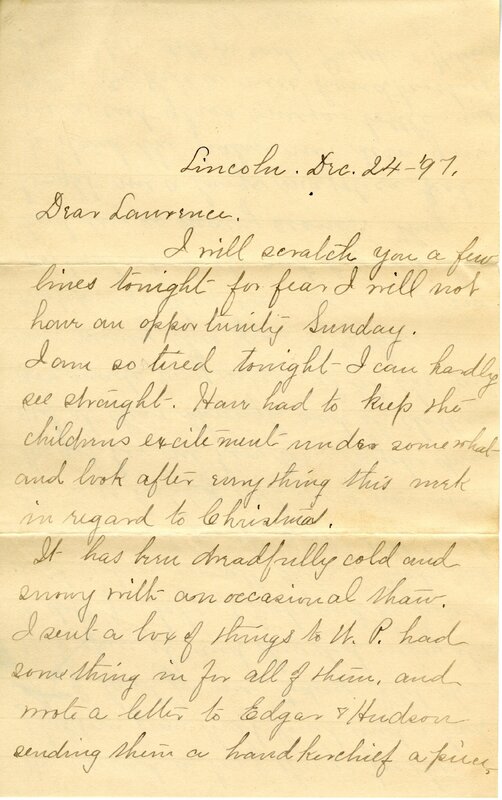 Lincoln. Dec. 24-'97.
Dear Lawrence.
I will scratch you a few
lines tonight for fear I will not
have an opportunity Sunday.
I am so tired tonight I can hardly
see straight. Have had to keep the
childrens excitement under somewhat
and look after everything this week
in regard to Christmas.
It has been dreadfully cold and
snowy with an occasional thaw.
I sent a box of things to W. P. had
something in for all of them, and
wrote a letter to Edgar & Hudson
sending them a handkerchief a piece